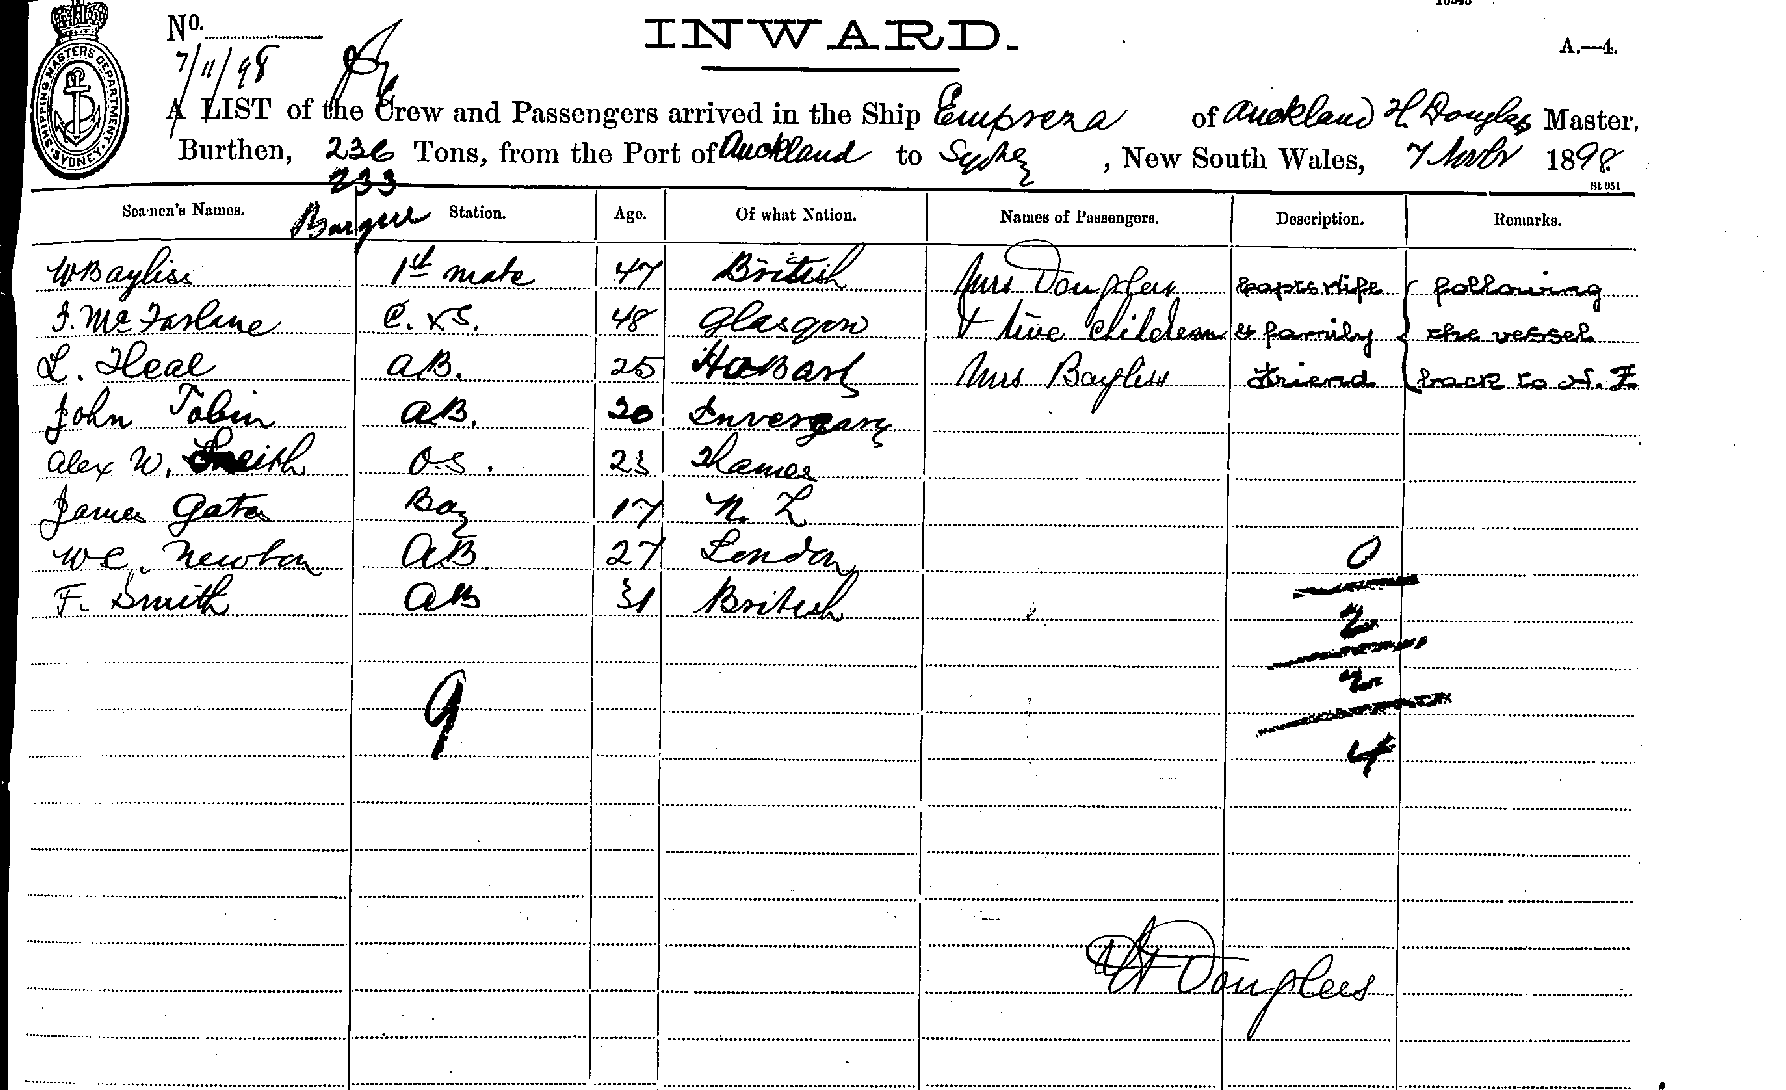 No.
7/11/98
INWARD.
A.—4.
SHIPPING MASTERS DEPARTMENT SYDNEY
A LIST of the Crew and Passengers arrived in the Ship Empreza of Auckland H. Douglas Master,
Burthen, 236 Tons, from the Port of Auckland to Sydney, New South Wales, 7 Novbr 1898
233
Barque
Seamen's Names. Station. Age. Of what Nation. Names of Passengers. Description. Remarks.
W Bayliss 1st mate 47 British Mrs Douglas Capts wife following
J. McFarlane C. & S. 48 Glasgow & five children & family the vessel
L. Heal AB. 25 Hobart Mrs Bayliss friend back to N. Z.
John Tobin AB. 20
Alex W. O.S. 23 Thames
James Boy 17 N. Z
W C. Newton AB 27 London
0
F. Smith AB 31 British
2
2
9
4
H Douglas